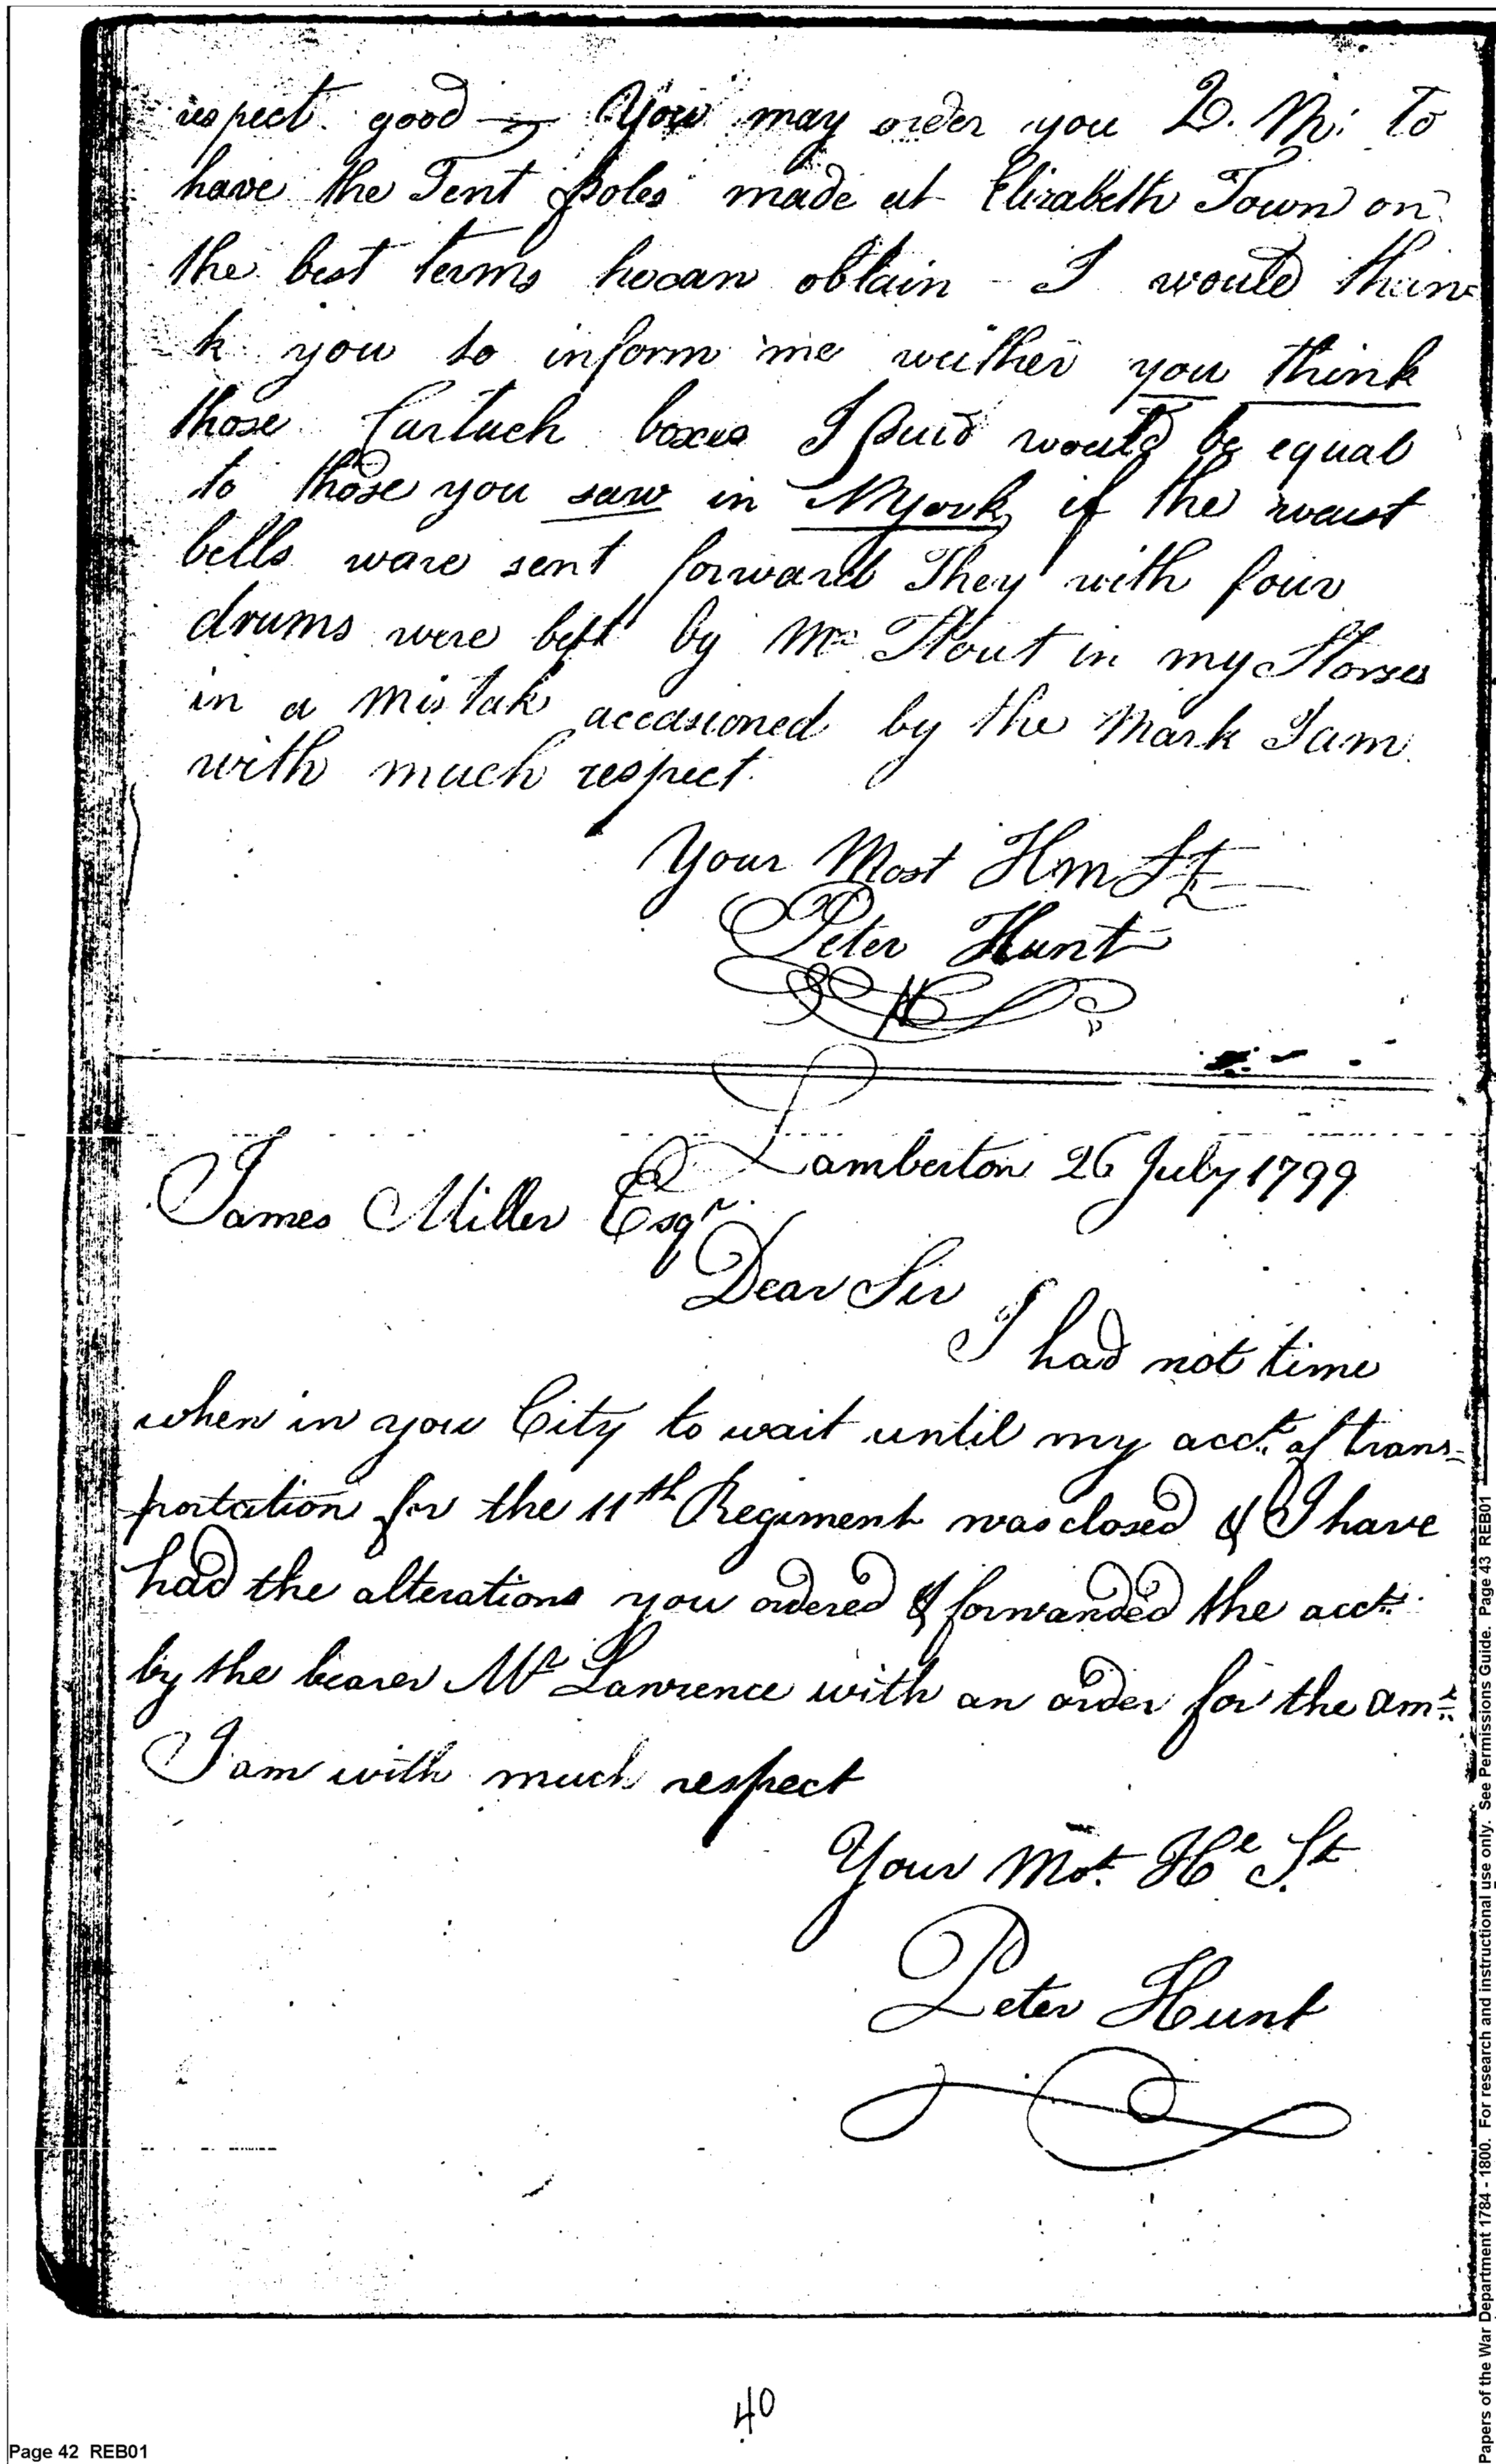 respect good — You may order you Q. M: To
have the Tent poles made at Elizabeth Town on
the best terms hecan obtain - I would than
k you to inform me weither you think
those Cartuch boxes I said would be equal
to those you saw in NYork, if the waist
bells ware sent forward They with four
drums were left by Mr Stout in my Stores
in a mistak accasioned by the Mark Iam
with much respect.
Your Most Hm St
Peter Hunt
Lamberton 26 July 1799
James Miller Esqr
Dear Sir
I had not time
when in you City to wait until my acct. of trans-
portation for the 11th Regiment was closed & I have
had the alterations you ordered & forwanded the acct.
by the bearer Mr Lawrence with an order for the amt.
I am with much respect
Your Mot. He St
Peter Hunt
40
Page 42 REB01
Papers of the War Department 1784 - 1800. For research and instructional use only. See Permissions Guide. Page 43 REB01